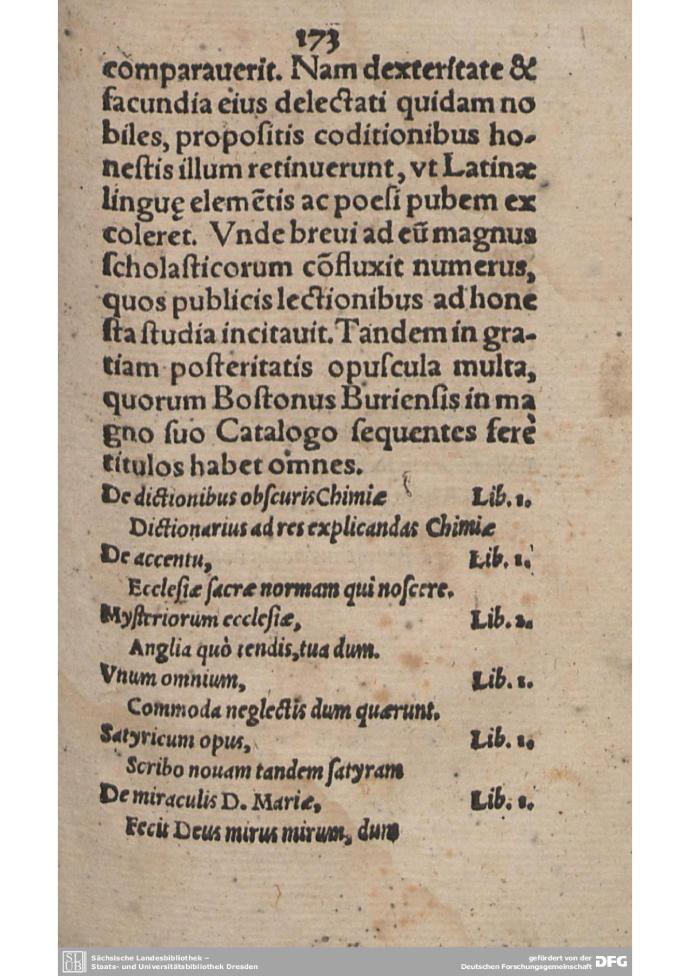 173
comparauerit. Nam dexteritate &
facundia eius delectati quidam no
biles, propoſitis coditionibus ho-
neſtis illum retinuerunt, vt Latinæ
linguę elemẽtis ac poeſi pubem ex
coleret. Vnde breui ad eũ magnus
ſcholaſticorum cõfluxit numerus,
quos publicis lectionibus ad hone
ſta ſtudia incitauit. Tandem in gra-
tiam poſteritatis opuſcula multa,
quorum Boſtonus Burienſis in ma
gno ſuo Catalogo ſequentes ferè
titulos habet omnes.
De dictionibus obſcuris Chimiæ Lib. 1.
Dictionarius ad res explicandas Chimiæ
De accentu, Lib. 1.
Eccleſiæ ſacræ normam qui noſcere.
Myſteriorum eccleſiæ, Lib. 2.
Anglia quò tendis, tua dum.
Vnum omnium, Lib. 1.
Commoda neglectis dum quærunt.
Satyricum opus, Lib. 1.
Scribo nouam tandem ſatyram
De miraculis D. Mariæ, Lib. 1.
Fecit Deus mirus mirum, dum
SLUB
Sächsische Landesbibliothek –
Staats- und Universitätsbibliothek Dresden
gefördert von der
Deutschen Forschungsgemeinschaft DFG